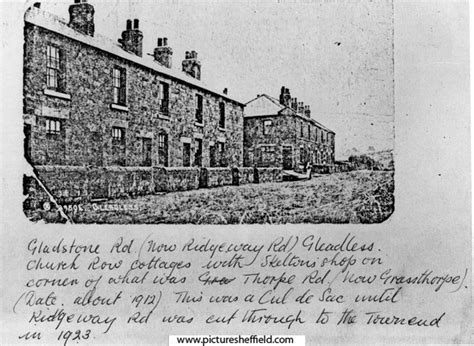 GLEADLESS.
Gladstone Rd. (Now Ridgeway Rd) Gleadless.
Church Row cottages with Skelton's shop on
corner of what was Thorpe Rd (Now Grassthorpe).
(Date. about 1912) This was a Cul de Sac until
Ridgeway Rd was cut through to the Townend
in 1923.
www.picturesheffield.com